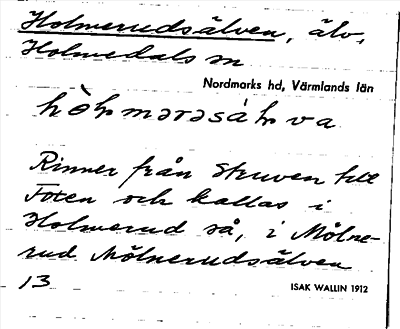 Holmerudsälven, älv,
Holmedals sn
Nordmarks hd, Värmlands län
Rinner från Struven till
Foten och kallas i
Holmerud så, i Mölne-
rud Mölnerudsälven
13
ISAK WALLIN 1912